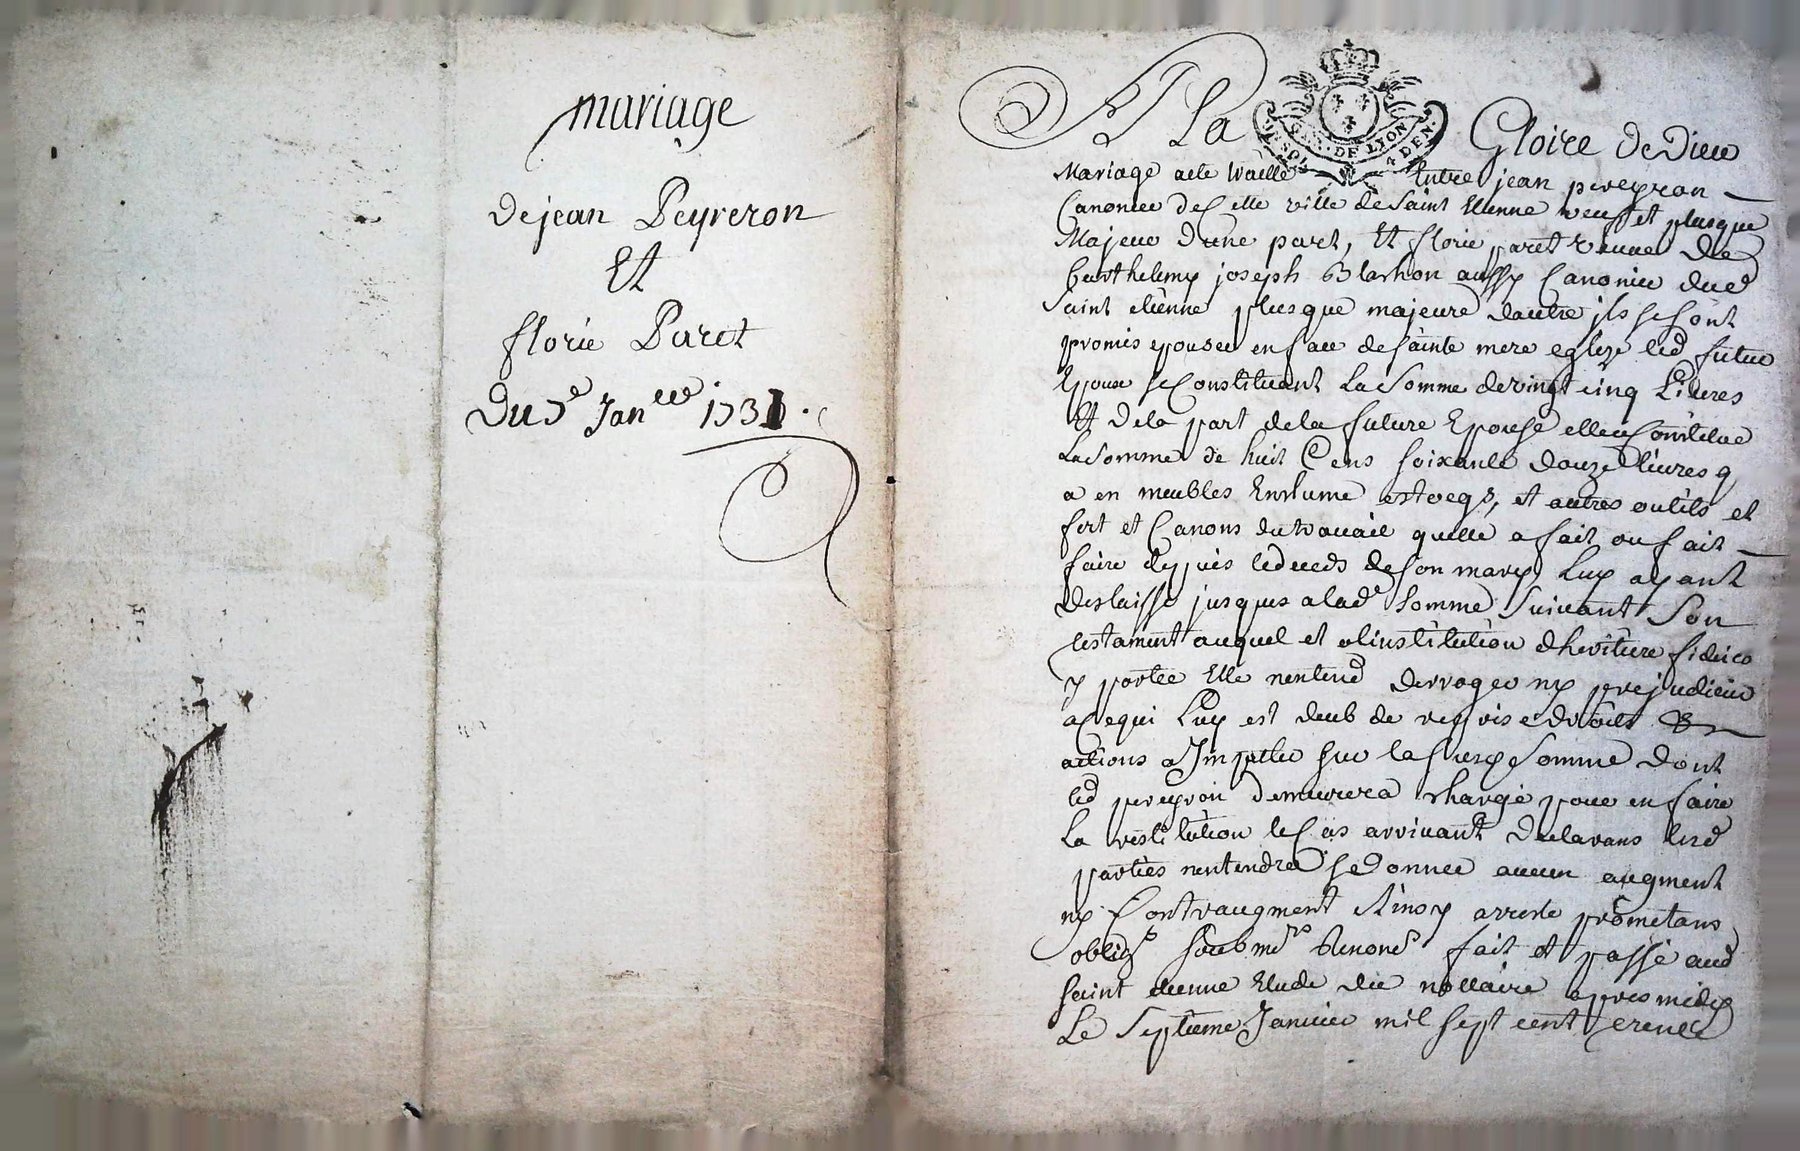 mariage
De jean Peyreron
Et
florie Paret
Du 7e Janer 1731.
A La Gloire de Dieu
GEN. DE LYON
4 DEN.
Mariage a ete traitté Entre jean peyeyron
Canonier de cette ville de Saint Etienne veuf et plusque
Majeur d'une part, Et florie paret veuve de
barthelemy joseph Blachon aussy Canonier dud
Saint etienne plusque majeure dautre jls se sont
promis epouser en face de sainte mere eglize led futur
Epoux se Constituant La Somme de vingt cinq Livres
Et de la part de la future Epouse elle se Constitue
La Somme de huit Cens soixante douze livres q
a en meubles Enclume et autres outils et
fert et Canons du travail quelle a fait ou fait
faire depuis le deceds de son mary Luy ayant
deslaissé jusques a lade Somme Suivant Son
testament auquel et a linstitution dheritiere fideico
y portée Elle nentend derroger ny prejudicier
a ce qui Luy est deub de reprise droits &
actions a Jmputer sur la susd Somme dont
led peyeyron demeurera chargé pour en faire
La restitution le Cas arrivant declarans lesd
parties nentendre se donner aucun augment
ny Contraugment Ainsy arresté prometans
obligs soubmis Renons fait et passé aud
saint etienne Etude du nottaire apres midy
Le Septieme Janvier mil sept cent trente